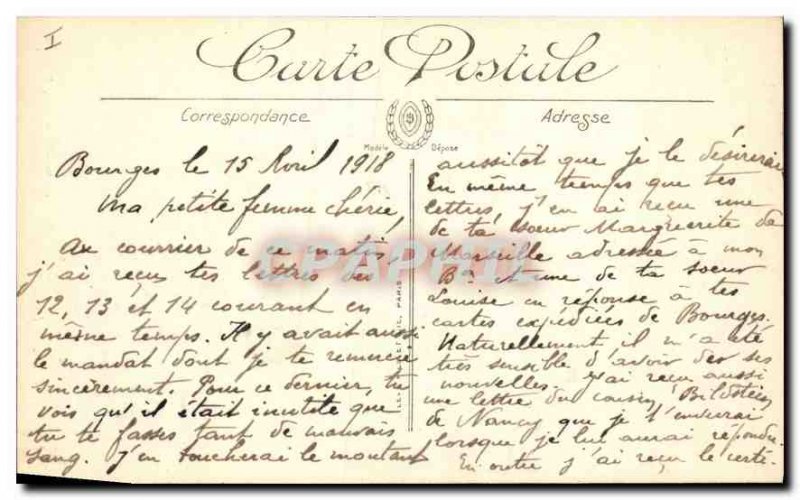 I
Carte Postale
Correspondance
Adresse
Modèle Déposé
Bourges le 15 Avril 1918
Ma petite femme chérie,
Au courrier de ce matin,
j'ai reçu tes lettres des
12, 13 et 14 courant en
même temps. Il y avait aussi
le mandat dont je te remercie
sincèrement. Pour ce dernier, tu
vois qu'il était inutile que
tu te fasses tant de mauvais
sang. J'en toucherai le montant
aussitôt que je le désirerai
En même temps que tes
lettres, j'en ai reçu une
de ta soeur Marguerite de
Marseille adressée à mon
Bon et une de ta soeur
Louise en réponse à tes
cartes expédiées de Bourges.
Naturellement il m'a été
très sensible d'avoir de ses
nouvelles. J'ai reçu aussi
une lettre du cousin Bildstein
de Nancy que je t'enverrai
lorsque je lui aurai répondu.
En outre j'ai reçu le certi-
CPAPHIL